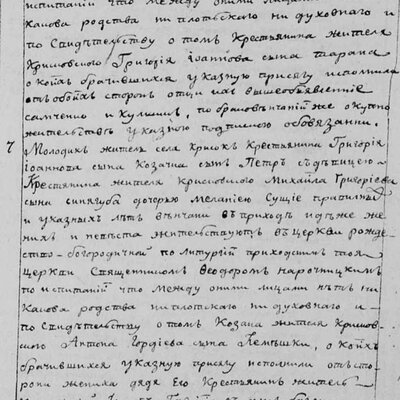 испытаній что между оними лицами
какова родства ни плотскаго ни духовнаго и
по свидѣтельству о томъ крестьянина жителя
Криковского Григорія Іоаннова сына Тарана
о коихъ брачившихся указную присягу исполнили
отъ обоихъ сторонъ отци ихъ вышеобъявленніе
и, по браковѣнчаній же о купно
жительствѣ указною подпискою обовязанни.
7 Молодикъ житель села Крюкъ крестьянина Григорія
Іоаннова сына Козачка сынъ Петръ съ дѣвицею
крестьянина жителя Михайла Григоріева
сына дочерью Меланіею сущіе
и указныхъ лѣтъ вѣнчани въ приходѣ идѣже же-
нихъ и невѣста жительствуютъ въ церкви рожде-
ство-богородичной по литургій приходскимъ тоя
церкви священникомъ Феодоромъ Нарочницкимъ
по испытаній что между оними лицами нѣтъ ни
какова родства ни плотскаго ни духовнаго и
по свидѣтельству о томъ козака жителя
ского Антона Гордіева сына Лемѣшки, о коихъ
брачившихся указную присягу исполнили отъ сто-
рони жениха дядя его крестьянинъ житель